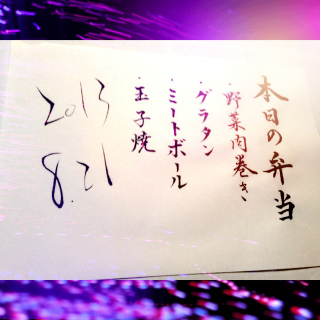 本日の弁当
・野菜肉巻き
・グラタン
・ミートボール
・玉子焼
2013
8.21